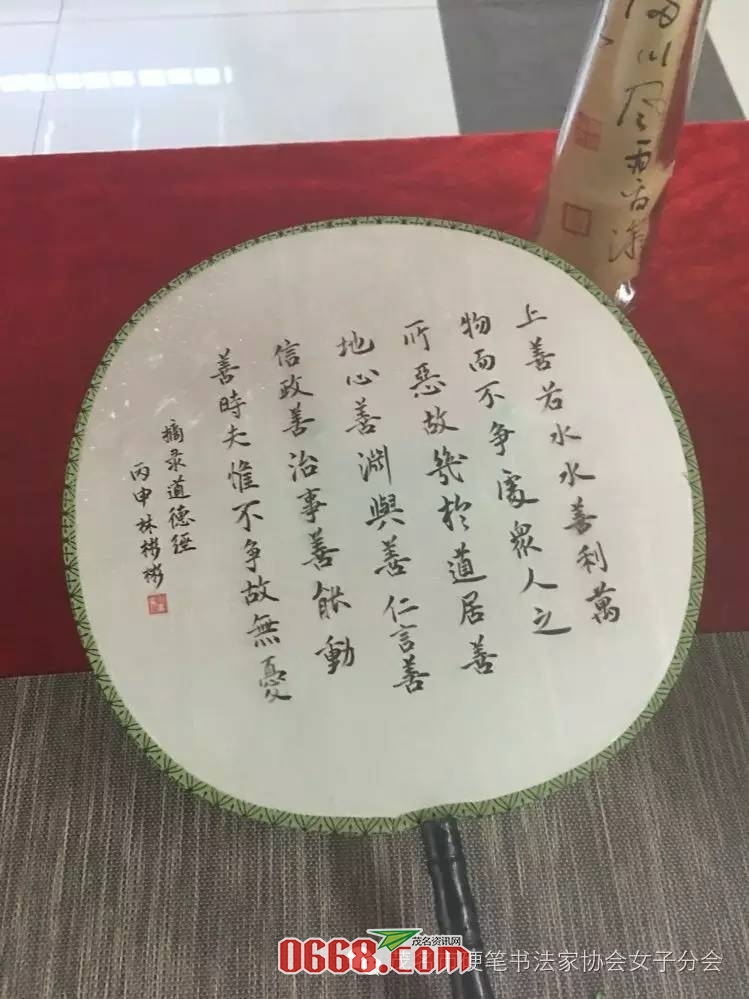 上善若水水善利萬
物而不争處眾人之
所惡故幾於道居善
地心善淵與善仁言善
信政善治事善能動
善時夫惟不争故無憂
摘录道德經
丙申林彬彬
川风雨看
茂名资讯网
0668.com
硬笔书法家协会女子分会